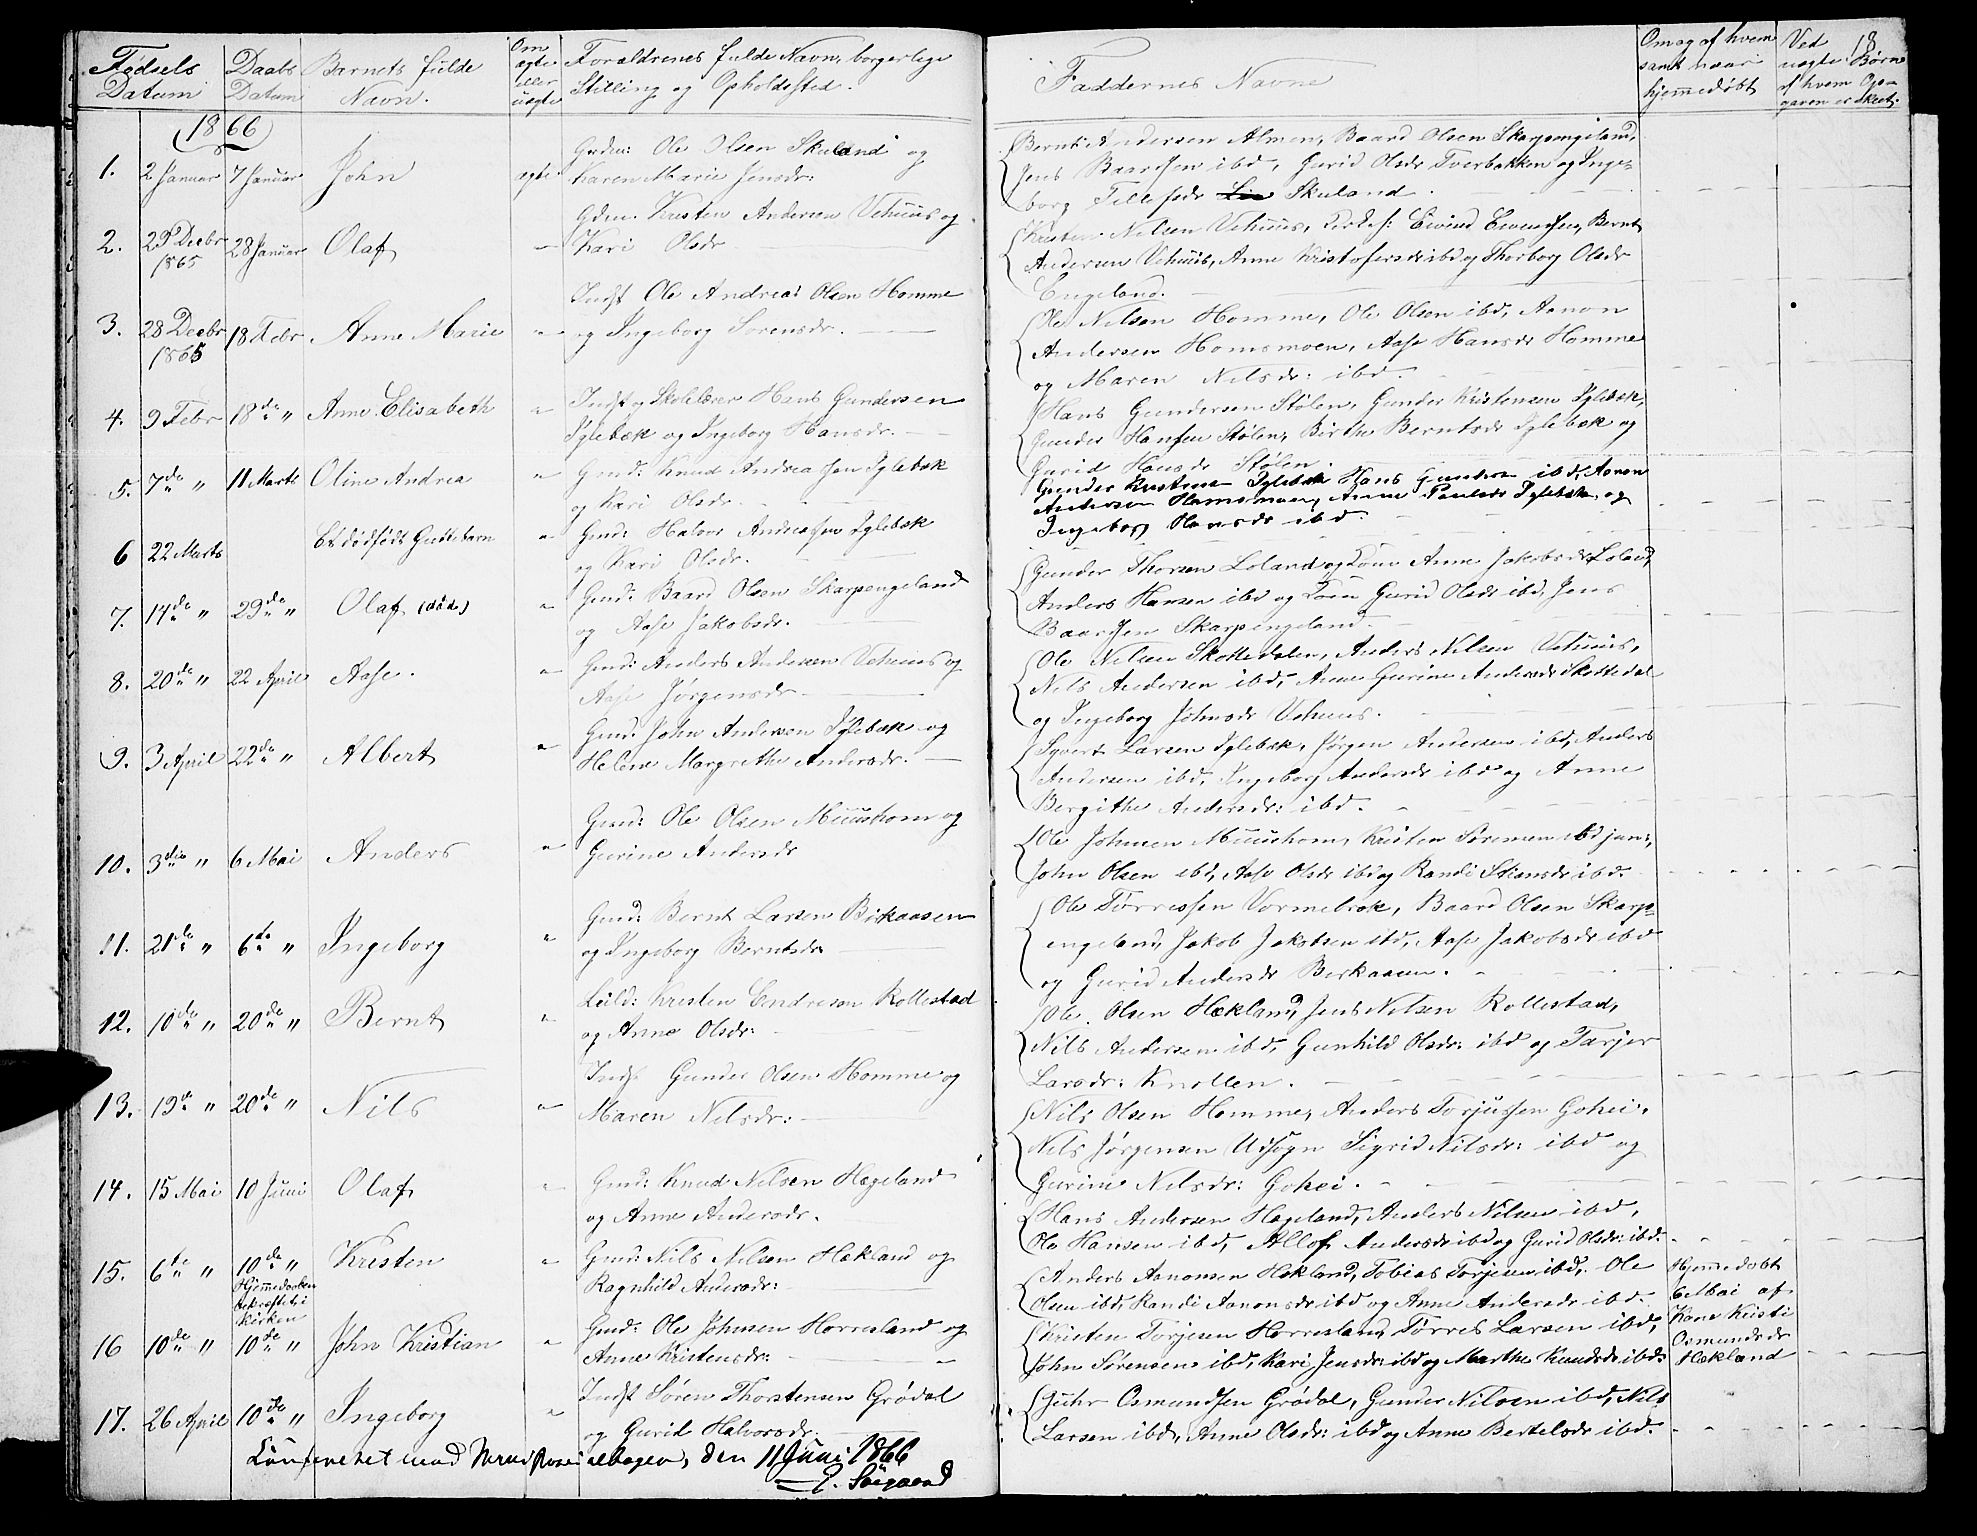 Fødsels Datum
Daabs Datum
Barnets fulde Navn.
Om ægte eller uægte
Forældrenes fulde Navn, borgerlige Stilling og Opholdsted.
Faddernes Navne
Om og af hvem samt naar hjemmedøbt
Ved uægte Børn af hvem Opgaven er skeet.
18
1866
1. 2 Januar 7 Januar John ægte.
Gmden: Ole Olsen Skuland og
Karen Marie Jensdr:
Bernt Andersen Almen, Baard Olsen Skarpengeland,
Jens Baardsen ibd, Gurid Olsdr Tverbakken og Inge-
borg Tellefsdr Skuland.
2. 29 Decbr 1865 28 Januar Olaf "
Gden. Kristen Andersen Vehuus og
Kari Olsdr
Kristen Nilsen Vehuus, Eivind Eivindsen, Bernt
Andersen Vehuus, Anne Kristofersdr ibd og Thorborg Olsdr
Engeland.
3. 28 Decbr 1865 18 Febr Anne Marie "
Indst Ole Andreas Olsen Homme
og Ingeborg Sorensdr.
Ole Nilsen Homme, Ole Olsen ibd, Aanon
Andersen Homsmoen, Aase Hansdr Homme
og Maren Nilsdr: ibd.
4. 9 Febr 18de " Anne Elisabeth "
Indst og Skolelærer Hans Gundersen
Iglebæk og Ingeborg Hansdr.
Hans Gundersen Stølen, Gunder Kristensen Iglebæk,
Gunder Hansen Stølen, Birthe Berntsdr Iglebæk og
Gurid Hansdr Stølen.
5. 7de " 11 Marts Oline Andrea "
Gmd: Knud Andreassen Iglebæk
og Kari Olsdr.
Gunder Kristensen Iglebæk Hans Gundersen ibd, Aanon
Andersen Homsmoen, Anne Paulsdr Iglebæk og
Ingeborg Hansdr ibd.
6 22 Marts Et dødfødt Guttebarn "
Gmd: Halvor Andreassen Iglebæk
og Kari Olsdr.
7. 14de " 29de " Olaf (død) "
Gmd: Baard Olsen Skarpengeland
og Aase Jakobsdr.
Gunder Thorsen Loland og Kone Anne Jakobsdr Loland,
Anders Hansen ibd og Kone Gurid Olsdr ibd, Jens
Baardsen Skarpengeland.
8. 20de " 22 April Aase. "
Gmd: Anders Andersen Vehuus og
Aase Jørgensdr
Ole Nilsen Skottedalen, Anders Nilsen Vehuus,
Nils Andersen ibd, Anne Gurine Andersdr Skottedal
og Ingeborg Johnsdr Vehuus.
9. 3 April 22de " Albert "
Gmd: John Andersen Iglebæk og
Helene Margrethe Andersdr.
Syvert Larsen Iglebæk, Jørgen Andersen ibd, Anders
Andersen ibd, Ingeborg Andersdr ibd og Anne
Bergithe Andersdr: ibd.
10. 3die " 6 Mai Anders "
Gmd: Ole Olsen Muushom og
Gurine Andersdr
Ole Johnsen Muushom, Kristen Sørensen ibd jun:,
John Olsen ibd, Aase Olsdr ibd og Randi ibd.
11. 21de " 6te " Ingeborg "
Gmd: Bernt Larsen Birkaasen
og Ingeborg Berntsdr
Ole Tørressen Vormebrok, Baard Olsen Skarp-
engeland, Jakob Jakobsen ibd, Aase Jakobsdr ibd
og Gurid Andersdr Berkaasen.
12. 10de " 20de " Bernt "
Leild: Kristen Endresen Rollestad
og Anne Olsdr:
Ole Olsen Hækland, Jens Nilsen Rollestad,
Nils Andersen ibd, Gunhild Olsdr: ibd og Tarjer
Larsdr: Knollen.
13. 19de " 20de " Nils "
Indst Gunder Olsen Homme og
Maren Nilsdr:
Nils Olsen Homme, Anders Torjussen Gohei,
Nils Jørgensen Udsogn Sigrid Nilsdr: ibd og
Gurine Nilsdr: Gohei.
14. 15 Mai 10 Juni Olaf "
Gmd: Knud Nilsen Hægeland
og Anne Andersdr.
Hans Andersen Hægeland, Anders Nilsen ibd,
Ole Hansen ibd, Andersdr ibd og Gurid Olsdr: ibd.
15. 6te " 10de " Hjemmedaaben bekræftet i Kirken Kristen "
Gmd: Nils Nilsen Hækland og
Ragnhild Andersdr:
Anders Aanonsen Hækland, Tobias Torjesen ibd, Ole
Olsen ibd, Randi Aanonsdr ibd og Anne Andersdr ibd.
Hjemmedøbt 6 Mai af Kone Kristi Osmundsdr Hækland
16 10de " 10de " John Kristian "
Gmd: Ole Johnsen Horresland og
Anne Kristensdr:
Kristen Torjesen Horresland, Tørres Larsen ibd,
John Sørensen ibd, Kari Jensdr: ibd og Marthe Knudsdr ibd:
17. 26 April 10de " Ingeborg "
Indst Søren Thorstensen Grødal
og Gurid Halvorsdr.
Osmundsen Grødal, Gunder Nilsen ibd, Nils
Larsen ibd, Anne Olsdr: ibd og Anne Bertelsdr ibd.
Konfereret med Ministerialbogen, den 11 Juni 1866